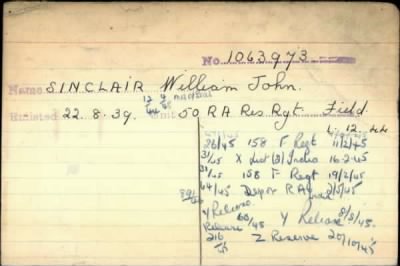 No. 1063973
Name SINCLAIR William John.
Enlisted 22.8.39. Unit 50 RA Res Rgt Field.
26/45 158 F Regt 11/2/45
31/45 X List (3) India 16.2.45
31/45 158 F Regt 19/2/45
64/45 Depot RA 2/5/45
Y Release
Release 60/45 Y Release 8/5/45.
216/45 Z Reserve 20/10/45